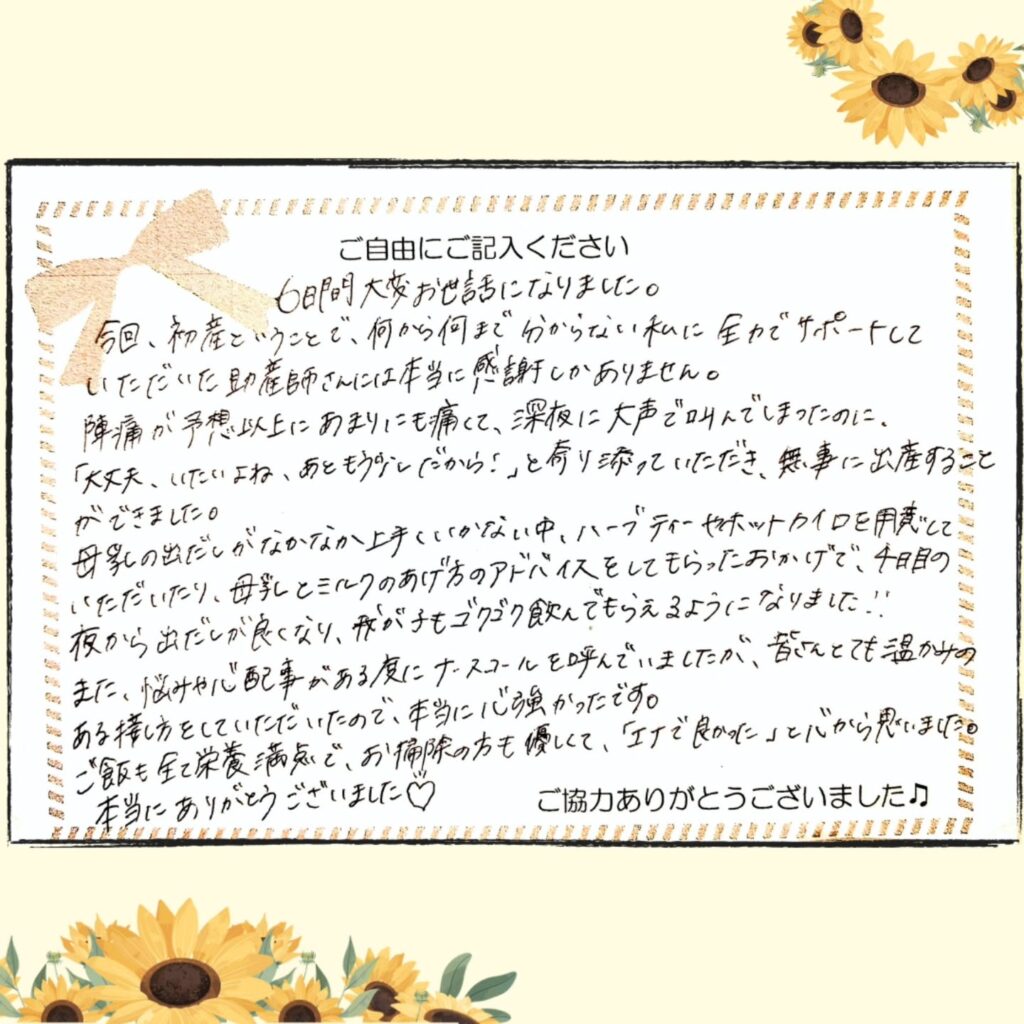 ご自由にご記入ください
6日間大変お世話になりました。
今回、初産ということで、何から何まで分からない私に全力でサポートして
いただいた助産師さんには本当に感謝しかありません。
陣痛が予想以上にあまりにも痛くて、深夜に大声で叫んでしまったのに、
「大丈夫、いたいよね、あともう少しだから!」と寄り添っていただき、無事に出産すること
ができました。
母乳の出だしがなかなか上手くいかない中、ハーブティーやホットカイロを用意して
いただいたり、母乳とミルクのあげ方のアドバイスをしてもらったおかげで、4日目の
夜から出だしが良くなり、我が子もゴクゴク飲んでもらえるようになりました!!
また、悩みや心配事がある度にナースコールを呼んでいましたが、皆さんとても温かみの
ある接し方をしていただいたので、本当に心強かったです。
ご飯も全て栄養満点で、お掃除の方も優しくて、「エナで良かった」と心から思いました。
本当にありがとうございました♡
ご協力ありがとうございました♫